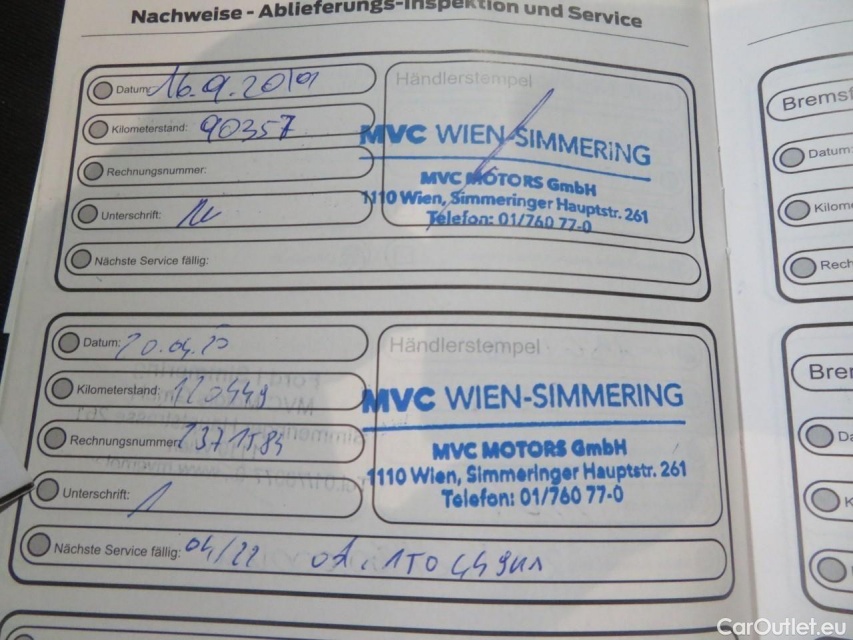 Nachweise - Ablieferungs-Inspektion und Service
Datum: 16.9.2019
Kilometerstand: 90357
Rechnungsnummer:
Unterschrift:
Nächste Service fällig:
Händlerstempel
MVC WIEN-SIMMERING
MVC MOTORS GmbH
1110 Wien, Simmeringer Hauptstr. 261
Telefon: 01/760 77-0
Datum: 20.04.20
Kilometerstand: 120449
Rechnungsnummer:
Unterschrift:
Nächste Service fällig: 04/22
Händlerstempel
MVC WIEN-SIMMERING
MVC MOTORS GmbH
1110 Wien, Simmeringer Hauptstr. 261
Telefon: 01/760 77-0
Datum:
CarOutlet.eu